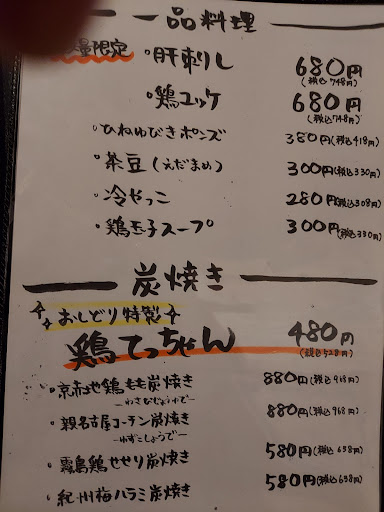 一品料理
量限定
・肝刺し 680円
(税込748円)
・鶏ユッケ 680円
(税込748円)
・ひねゆびきポンズ 380円(税込418円)
・茶豆(えだまめ) 300円(税込330)
・冷やっこ 280円(税込308円)
・鶏玉子スープ 300円(税込330)
炭焼き
おしどり特製
鶏てっちゃん 480円
(税込528円)
・京赤地鶏もも炭焼き 880円(税込968円)
ーわさびじょうゆでー
・親名古屋コーチン炭焼き 880円(税込968)
ーゆずこしょうでー
・霧島鶏せせり炭焼き 580円(税込638円)
・紀州梅ハラミ炭焼き 580円(税込638円)